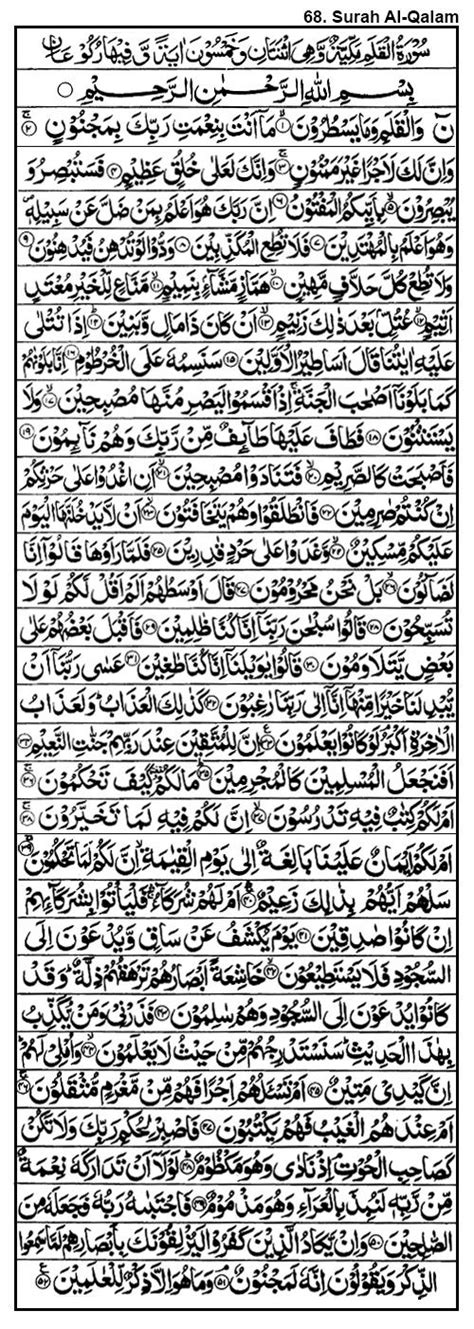 68. Surah Al-Qalam
سُوْرَةُ الْقَلَمِ مَكِّيَّةٌ وَّهِىَ اثْنَتَانِ وَخَمْسُوْنَ اٰيَةً وَّفِيْهَا رُكُوْعَانِ
بِسْمِ اللّٰهِ الرَّحْمٰنِ الرَّحِيْمِ ○
نٓ وَالْقَلَمِ وَمَا يَسْطُرُوْنَ ۙ﴿۱﴾ مَاۤ اَنْتَ بِنِعْمَتِ رَبِّكَ بِمَجْنُوْنٍ ۚ﴿۲﴾
وَاِنَّ لَكَ لَاَجْرًا غَيْرَ مَمْنُوْنٍ ۚ﴿۳﴾ وَاِنَّكَ لَعَلٰى خُلُقٍ عَظِيْمٍ ﴿۴﴾ فَسَتُبْصِرُ وَ
يُبْصِرُوْنَ ۙ﴿۵﴾ بِاَيِّىكُمُ الْمَفْتُوْنُ ﴿۶﴾ اِنَّ رَبَّكَ هُوَ اَعْلَمُ بِمَنْ ضَلَّ عَنْ سَبِيْلِهٖ
وَهُوَ اَعْلَمُ بِالْمُهْتَدِيْنَ ﴿۷﴾ فَلَا تُطِعِ الْمُكَذِّبِيْنَ ﴿۸﴾ وَدُّوْا لَوْ تُدْهِنُ فَيُدْهِنُوْنَ ﴿۹﴾
وَلَا تُطِعْ كُلَّ حَلَّافٍ مَّهِيْنٍ ۙ﴿۱۰﴾ هَمَّازٍ مَّشَّآءٍۢ بِنَمِيْمٍ ۙ﴿۱۱﴾ مَّنَّاعٍ لِّلْخَيْرِ مُعْتَدٍ
اَثِيْمٍ ۙ﴿۱۲﴾ عُتُلٍّۢ بَعْدَ ذٰلِكَ زَنِيْمٍ ۙ﴿۱۳﴾ اَنْ كَانَ ذَا مَالٍ وَّبَنِيْنَ ؕ﴿۱۴﴾ اِذَا تُتْلٰى
عَلَيْهِ اٰيٰتُنَا قَالَ اَسَاطِيْرُ الْاَوَّلِيْنَ ﴿۱۵﴾ سَنَسِمُهٗ عَلَى الْخُرْطُوْمِ ﴿۱۶﴾ اِنَّا بَلَوْنٰهُمْ
كَمَا بَلَوْنَاۤ اَصْحٰبَ الْجَنَّةِ ۚ اِذْ اَقْسَمُوْا لَيَصْرِمُنَّهَا مُصْبِحِيْنَ ۙ﴿۱۷﴾ وَلَا
يَسْتَثْنُوْنَ ﴿۱۸﴾ فَطَافَ عَلَيْهَا طَآئِفٌ مِّنْ رَّبِّكَ وَهُمْ نَآئِمُوْنَ ﴿۱۹﴾
فَاَصْبَحَتْ كَالصَّرِيْمِ ۙ﴿۲۰﴾ فَتَنَادَوْا مُصْبِحِيْنَ ۙ﴿۲۱﴾ اَنِ اغْدُوْا عَلٰى حَرْثِكُمْ
اِنْ كُنْتُمْ صٰرِمِيْنَ ﴿۲۲﴾ فَانْطَلَقُوْا وَهُمْ يَتَخَافَتُوْنَ ۙ﴿۲۳﴾ اَنْ لَّا يَدْخُلَنَّهَا الْيَوْمَ
عَلَيْكُمْ مِّسْكِيْنٌ ۙ﴿۲۴﴾ وَّغَدَوْا عَلٰى حَرْدٍ قٰدِرِيْنَ ﴿۲۵﴾ فَلَمَّا رَاَوْهَا قَالُوْۤا اِنَّا
لَضَآلُّوْنَ ۙ﴿۲۶﴾ بَلْ نَحْنُ مَحْرُوْمُوْنَ ﴿۲۷﴾ قَالَ اَوْسَطُهُمْ اَلَمْ اَقُلْ لَّكُمْ لَوْ لَا
تُسَبِّحُوْنَ ﴿۲۸﴾ قَالُوْا سُبْحٰنَ رَبِّنَاۤ اِنَّا كُنَّا ظٰلِمِيْنَ ﴿۲۹﴾ فَاَقْبَلَ بَعْضُهُمْ عَلٰى
بَعْضٍ يَّتَلَاوَمُوْنَ ﴿۳۰﴾ قَالُوْا يٰوَيْلَنَاۤ اِنَّا كُنَّا طٰغِيْنَ ﴿۳۱﴾ عَسٰى رَبُّنَاۤ اَنْ
يُّبْدِلَنَا خَيْرًا مِّنْهَاۤ اِنَّاۤ اِلٰى رَبِّنَا رٰغِبُوْنَ ﴿۳۲﴾ كَذٰلِكَ الْعَذَابُ ؕ وَلَعَذَابُ
الْاٰخِرَةِ اَكْبَرُ ۘ لَوْ كَانُوْا يَعْلَمُوْنَ ﴿۳۳﴾ اِنَّ لِلْمُتَّقِيْنَ عِنْدَ رَبِّهِمْ جَنّٰتِ النَّعِيْمِ ﴿۳۴﴾
اَفَنَجْعَلُ الْمُسْلِمِيْنَ كَالْمُجْرِمِيْنَ ؕ﴿۳۵﴾ مَا لَكُمْ كَيْفَ تَحْكُمُوْنَ ۚ﴿۳۶﴾
اَمْ لَكُمْ كِتٰبٌ فِيْهِ تَدْرُسُوْنَ ۙ﴿۳۷﴾ اِنَّ لَكُمْ فِيْهِ لَمَا تَخَيَّرُوْنَ ۚ﴿۳۸﴾
اَمْ لَكُمْ اَيْمَانٌ عَلَيْنَا بَالِغَةٌ اِلٰى يَوْمِ الْقِيٰمَةِ ۙ اِنَّ لَكُمْ لَمَا تَحْكُمُوْنَ ۚ﴿۳۹﴾
سَلْهُمْ اَيُّهُمْ بِذٰلِكَ زَعِيْمٌ ۚ﴿۴۰﴾ اَمْ لَهُمْ شُرَكَآءُ ۚ فَلْيَاْتُوْا بِشُرَكَآئِهِمْ
اِنْ كَانُوْا صٰدِقِيْنَ ﴿۴۱﴾ يَوْمَ يُكْشَفُ عَنْ سَاقٍ وَّيُدْعَوْنَ اِلَى
السُّجُوْدِ فَلَا يَسْتَطِيْعُوْنَ ۙ﴿۴۲﴾ خَاشِعَةً اَبْصَارُهُمْ تَرْهَقُهُمْ ذِلَّةٌ ؕ وَقَدْ
كَانُوْا يُدْعَوْنَ اِلَى السُّجُوْدِ وَهُمْ سٰلِمُوْنَ ﴿۴۳﴾ فَذَرْنِىْ وَمَنْ يُّكَذِّبُ
بِهٰذَا الْحَدِيْثِ ؕ سَنَسْتَدْرِجُهُمْ مِّنْ حَيْثُ لَا يَعْلَمُوْنَ ۙ﴿۴۴﴾ وَاُمْلِىْ لَهُمْ ؕ
اِنَّ كَيْدِىْ مَتِيْنٌ ﴿۴۵﴾ اَمْ تَسْئَلُهُمْ اَجْرًا فَهُمْ مِّنْ مَّغْرَمٍ مُّثْقَلُوْنَ ۚ﴿۴۶﴾
اَمْ عِنْدَهُمُ الْغَيْبُ فَهُمْ يَكْتُبُوْنَ ﴿۴۷﴾ فَاصْبِرْ لِحُكْمِ رَبِّكَ وَلَا تَكُنْ
كَصَاحِبِ الْحُوْتِ ۘ اِذْ نَادٰى وَهُوَ مَكْظُوْمٌ ؕ﴿۴۸﴾ لَوْلَاۤ اَنْ تَدٰرَكَهٗ نِعْمَةٌ
مِّنْ رَّبِّهٖ لَنُبِذَ بِالْعَرَآءِ وَهُوَ مَذْمُوْمٌ ﴿۴۹﴾ فَاجْتَبٰىهُ رَبُّهٗ فَجَعَلَهٗ مِنَ
الصّٰلِحِيْنَ ﴿۵۰﴾ وَاِنْ يَّكَادُ الَّذِيْنَ كَفَرُوْا لَيُزْلِقُوْنَكَ بِاَبْصَارِهِمْ لَمَّا سَمِعُوا
الذِّكْرَ وَيَقُوْلُوْنَ اِنَّهٗ لَمَجْنُوْنٌ ۘ﴿۵۱﴾ وَمَا هُوَ اِلَّا ذِكْرٌ لِّلْعٰلَمِيْنَ ﴿۵۲﴾